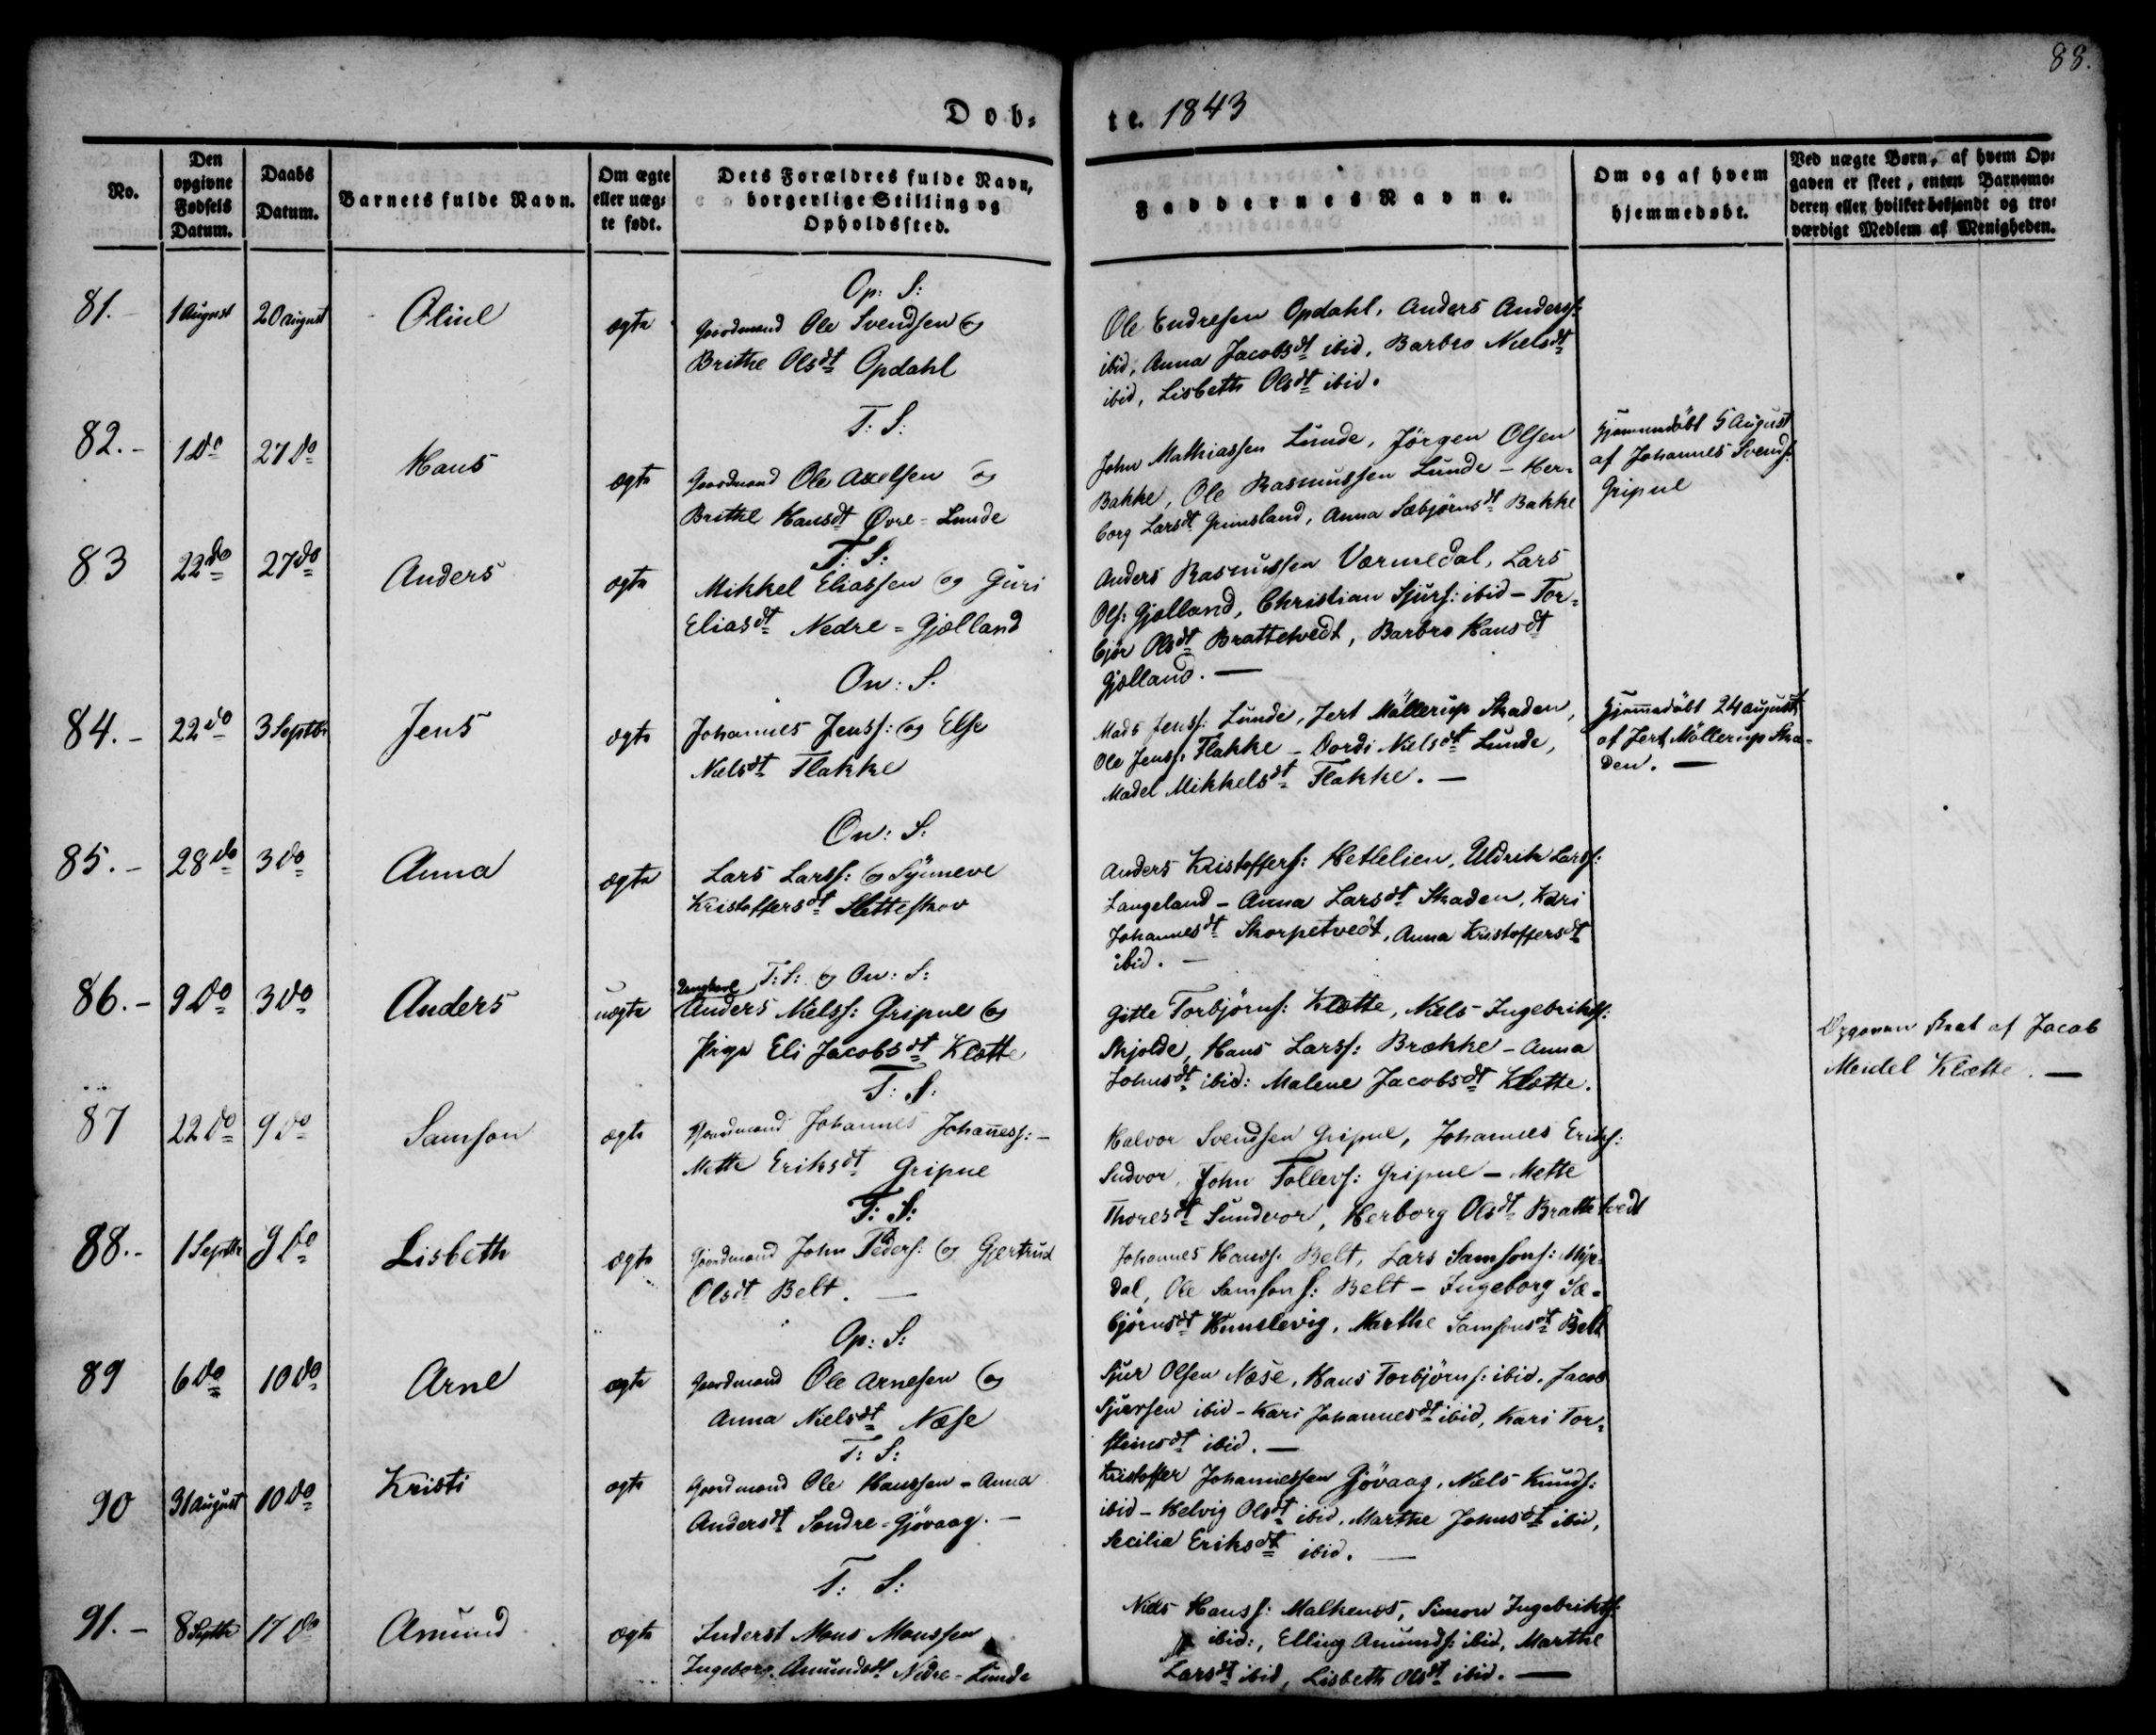 88.
Døb-
te. 1843
No.
Den opgivne Fødsels Datum.
Daabs Datum.
Barnets fulde Navn.
Om ægte eller uæg-te født.
Dets Forældres fulde Navn, borgerlige Stilling og Opholdssted.
Faddernes Navne.
Om og af hvem hjemmedøbt.
Ved uægte Børn, af hvem Op-gaven er skeet, enten Barnemo-deren eller hvilket bekjendt og tro-værdigt Medlem af Menigheden.
81. 1 August 20 august Oline ægte
Op: S:
Gaardmand Ole Svendsen og
Brithe Olsdt Opdahl
Ole Endresen Opdahl, Anders Anderss:
ibid, Anna Jacobsdt ibid, Barbro Nielsdt
ibid, Lisbeth Olsdt ibid.
82. 1 do 27 do Hans ægte
T: S:
Gaardmand Ole Axelsen og
Brithe Hansdt Øvre-Lunde
John Mathiassen Lunde, Jörgen Olsen
Bakke, Ole Rasmussen Lunde - Her-
borg Larsdt Grimsland, Anna Sæbjørnsdt Bakke
Hjemmedöbt 5 August
af Johannes Svends:
Gripne
83 22 do 27 do Anders ægte
T: S:
Mikkel Eliassen og Guri
Eliasdt Nedre-Gjælland
Anders Rasmussen Værmedal, Lars
Ols: Gjælland, Christian Sjurs: ibid - Tor-
bjør Olsdt Brattetvedt, Barbro Hansdt
Gjælland. -
84. 22 do 3 Septbr Jens ægte
On: S.
Johannes Jenss: og Else
Nielsdt Flakke
Mads Jenss: Lunde, Jert Möllerup Skaden,
Ole Jenss: Flakke - Dordi Nielsdt Lunde,
Madel Mikkelsdt Flakke. -
Hjemmedöbt 24 august
af Jert Möllerup Ska-
den. -
85. 28 do 3 do Anna ægte
On: S:
Lars Larss: og Synneve
Kristoffersdt Sletteskov
Anders Kristoffers: Hetlelien, Uldrik Larss:
Langeland - Anna Larsdt Skaden, Kari
Johannesdt Skorpetvedt, Anna Kristoffersdt
ibid. -
86. 9 do 3 do Anders uægte
T: S: og On: S:
Ungkarl
Anders Nielss: Gripne og
Pige Eli Jacobsdt Klætte
Gitle Torbjörns: Klætte, Niels Ingebrikts:
Skjolde, Hans Larss: Brække - Anna
Johnsdt ibid: Malene Jacobsdt Klætte.
Opgaven skeet af Jacob
Meidel Klætte. -
87 22 do 9 do Samson ægte
T: S:
Gaardmand Johannes Johaness: -
Mette Eriksdt Gripne
Halvor Svendsen Gripne, Johannes Eriks:
Sudvor, John Tollevs: Gripne - Mette
Thoresdt Sundvor, Herborg Olsdt Brattetvedt
88. 1 Septbr 9 do Lisbeth ægte
T: S:
Gaardmand John Peders: og Gjertrud
Olsdt Belt. -
Johannes Hanss: Belt, Lars Samsons: Myr-
dal, Ole Samsons: Belt - Ingeborg Sæ-
björnsdt Hunslevig, Marthe Samsonsdt Belt
89 6 do 10 do Arne ægte
Op: S:
Gaardmand Ole Arnesen og
Anna Nielsdt Næse
Sjur Olsen Næse, Hans Torbjörns: ibid, Jacob
Sjursen ibid - Kari Johannesdt ibid, Kari Tor-
steinsdt ibid. -
90 31 August 10 do Kristi ægte
T: S:
Gaardmand Ole Hanssen - Anna
Andersdt Søndre-Gjövaag. -
Kristoffer Johannessen Gjövaag, Niels Knuds:
ibid - Helvig Olsdt ibid, Marthe Johnsdt ibid,
Secilia Eriksdt ibid. -
91. 8 Septbr 17 do Amund ægte
T: S:
Inderst Mons Monssen
Ingeborg Amundsdt Nedre-Lunde
Niels Hanss: Malkenes, Simon Ingebrikts:
ibid:, Elling Amunds: ibid, Marthe
Larsdt ibid, Lisbeth Olsdt ibid. -